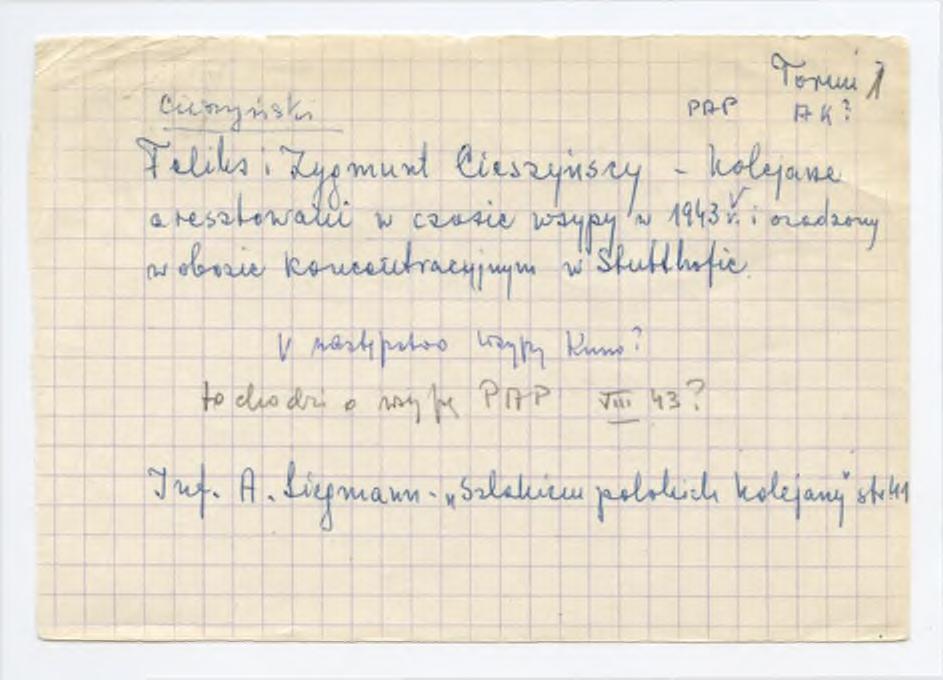 Toruń 1
Cieszyński PAP AK?
Feliks i Zygmunt Cieszyńscy - kolejarze
aresztowani w czasie wsypy w 1943 r. i osadzony
w obozie koncentracyjnym w Stutthofie.
V następstwo wsypy Kuno?
to chodzi o wsypę PAP VIII 43?
Inf. A. Ziegmann - „Szlakiem polskich kolejarzy" str 41